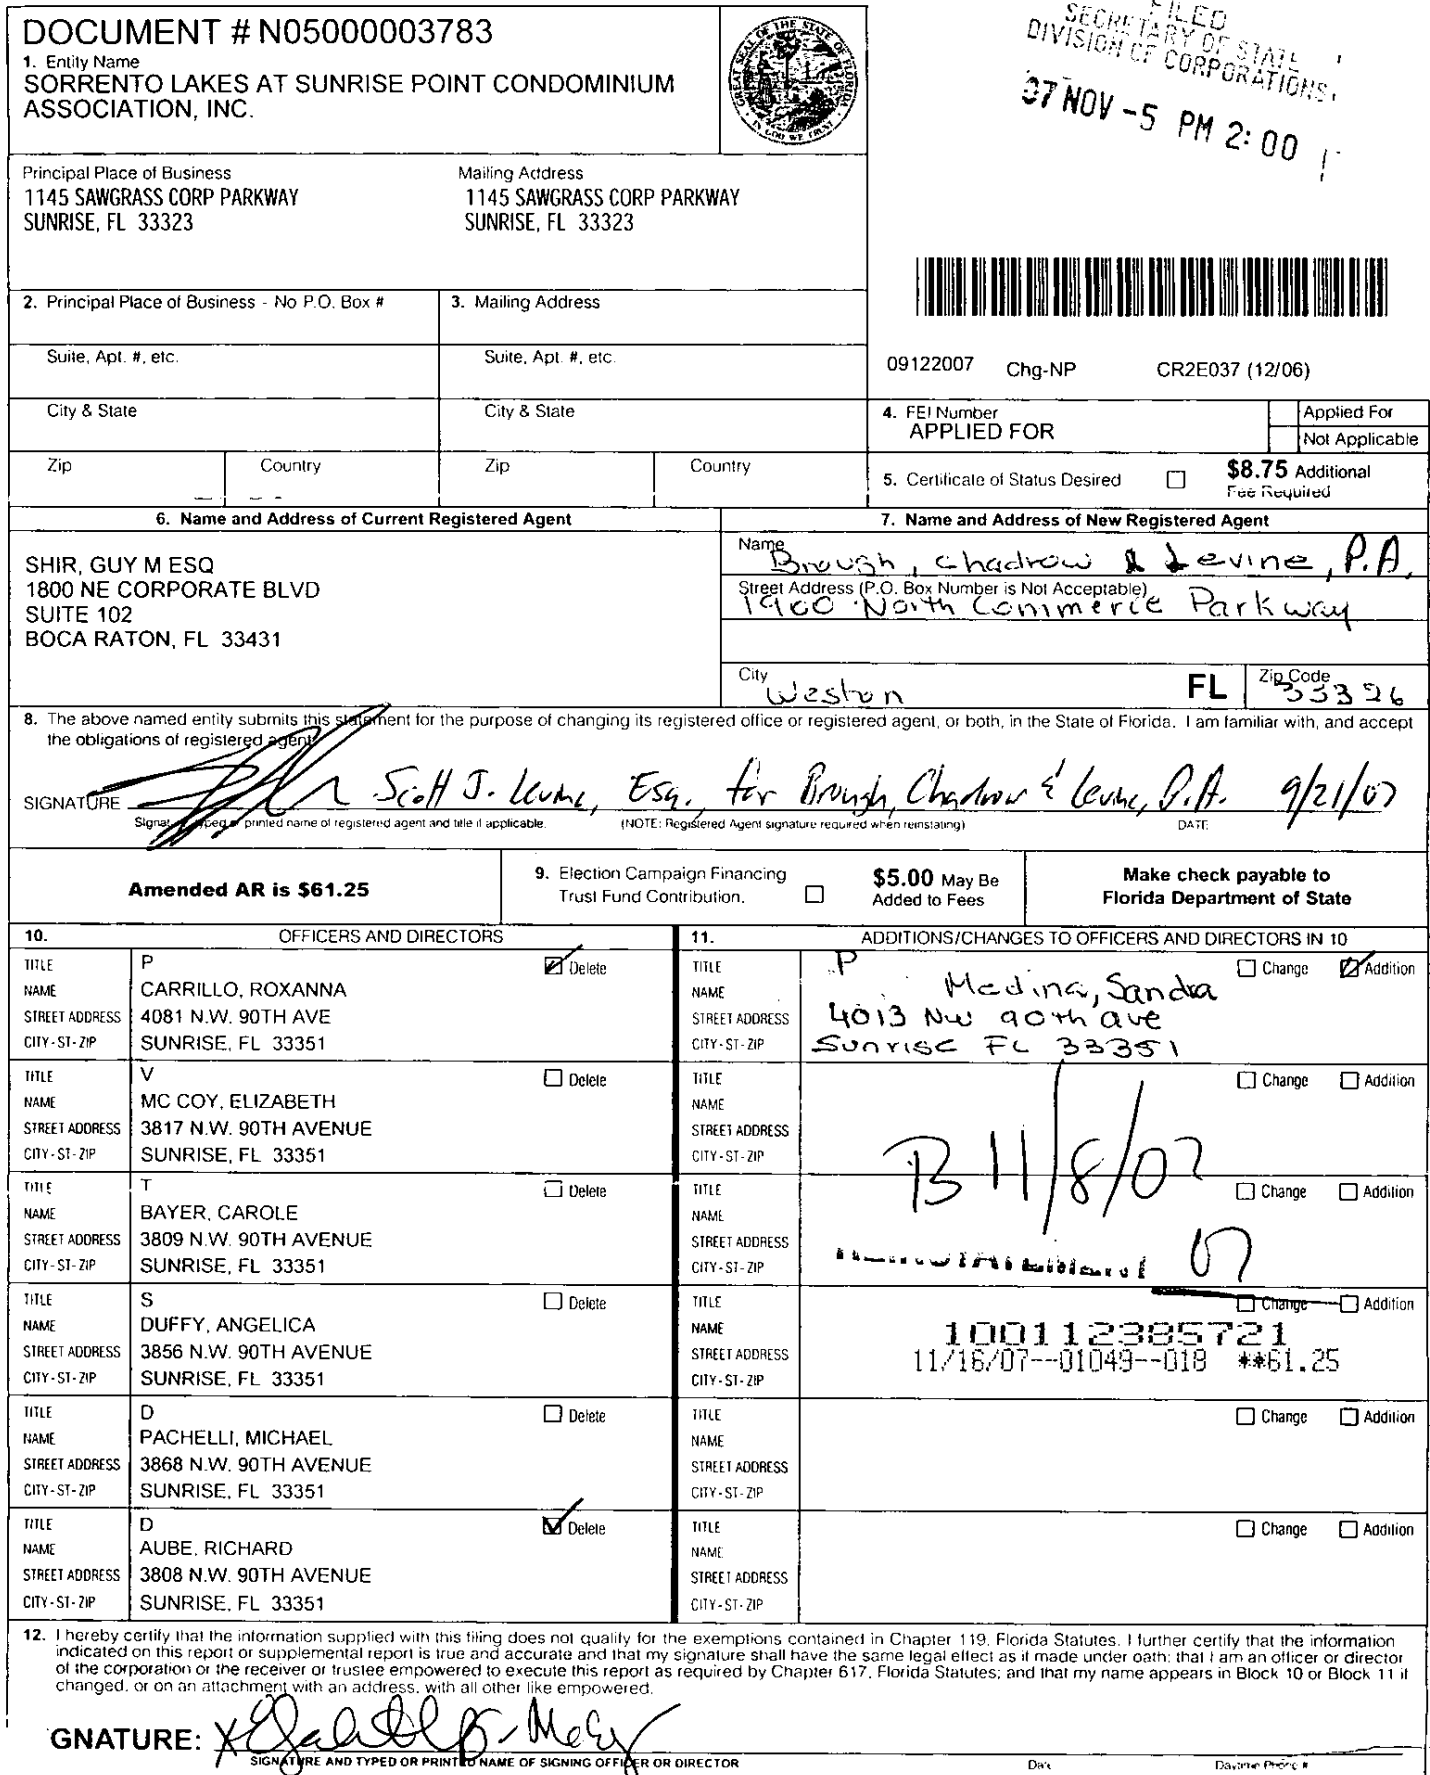 DOCUMENT # N05000003783
1. Entity Name
SORRENTO LAKES AT SUNRISE POINT CONDOMINIUM
ASSOCIATION, INC.
GREAT SEAL OF THE STATE OF FLORIDA
IN GOD WE TRUST
FILED
SECRETARY OF STATE
DIVISION OF CORPORATIONS
07 NOV -5 PM 2:00
Principal Place of Business
1145 SAWGRASS CORP PARKWAY
SUNRISE, FL 33323
Mailing Address
1145 SAWGRASS CORP PARKWAY
SUNRISE, FL 33323
2. Principal Place of Business - No P.O. Box #
3. Mailing Address
Suite, Apt. #, etc.
Suite, Apt. #, etc.
09122007 Chg-NP CR2E037 (12/06)
City & State
City & State
4. FEI Number
APPLIED FOR
Applied For
Not Applicable
Zip
Country
Zip
Country
5. Certificate of Status Desired
$8.75 Additional
Fee Required
6. Name and Address of Current Registered Agent
SHIR, GUY M ESQ
1800 NE CORPORATE BLVD
SUITE 102
BOCA RATON, FL 33431
7. Name and Address of New Registered Agent
Name
Brough, Chadrow & Levine, P.A.
Street Address (P.O. Box Number is Not Acceptable)
1900 North Commerce Parkway
City
Weston
FL
Zip Code
33326
8. The above named entity submits this statement for the purpose of changing its registered office or registered agent, or both, in the State of Florida. I am familiar with, and accept
the obligations of registered agent.
SIGNATURE Scott J. Levine, Esq., for Brough, Chadrow & Levine, P.A. 9/21/07
Signature, typed or printed name of registered agent and title if applicable. (NOTE: Registered Agent signature required when reinstating) DATE
Amended AR is $61.25
9. Election Campaign Financing
Trust Fund Contribution.
$5.00 May Be
Added to Fees
Make check payable to
Florida Department of State
10. OFFICERS AND DIRECTORS
TITLE P Delete
NAME CARRILLO, ROXANNA
STREET ADDRESS 4081 N.W. 90TH AVE
CITY-ST-ZIP SUNRISE, FL 33351
TITLE V Delete
NAME MC COY, ELIZABETH
STREET ADDRESS 3817 N.W. 90TH AVENUE
CITY-ST-ZIP SUNRISE, FL 33351
TITLE T Delete
NAME BAYER, CAROLE
STREET ADDRESS 3809 N.W. 90TH AVENUE
CITY-ST-ZIP SUNRISE, FL 33351
TITLE S Delete
NAME DUFFY, ANGELICA
STREET ADDRESS 3856 N.W. 90TH AVENUE
CITY-ST-ZIP SUNRISE, FL 33351
TITLE D Delete
NAME PACHELLI, MICHAEL
STREET ADDRESS 3868 N.W. 90TH AVENUE
CITY-ST-ZIP SUNRISE, FL 33351
TITLE D Delete
NAME AUBE, RICHARD
STREET ADDRESS 3808 N.W. 90TH AVENUE
CITY-ST-ZIP SUNRISE, FL 33351
11. ADDITIONS/CHANGES TO OFFICERS AND DIRECTORS IN 10
TITLE P Change Addition
NAME Medina, Sandra
STREET ADDRESS 4013 NW 90th ave
CITY-ST-ZIP Sunrise FL 33351
TITLE Change Addition
NAME
STREET ADDRESS
CITY-ST-ZIP
B 11/8/07
TITLE Change Addition
NAME
STREET ADDRESS
CITY-ST-ZIP REINSTATEMENT 07
TITLE Change Addition
NAME 100112385721
STREET ADDRESS 11/16/07--01049--018 **61.25
CITY-ST-ZIP
TITLE Change Addition
NAME
STREET ADDRESS
CITY-ST-ZIP
TITLE Change Addition
NAME
STREET ADDRESS
CITY-ST-ZIP
12. I hereby certify that the information supplied with this filing does not qualify for the exemptions contained in Chapter 119, Florida Statutes. I further certify that the information
indicated on this report or supplemental report is true and accurate and that my signature shall have the same legal effect as if made under oath; that I am an officer or director
of the corporation or the receiver or trustee empowered to execute this report as required by Chapter 617, Florida Statutes; and that my name appears in Block 10 or Block 11 if
changed, or on an attachment with an address, with all other like empowered.
GNATURE: X
SIGNATURE AND TYPED OR PRINTED NAME OF SIGNING OFFICER OR DIRECTOR Date Daytime Phone #